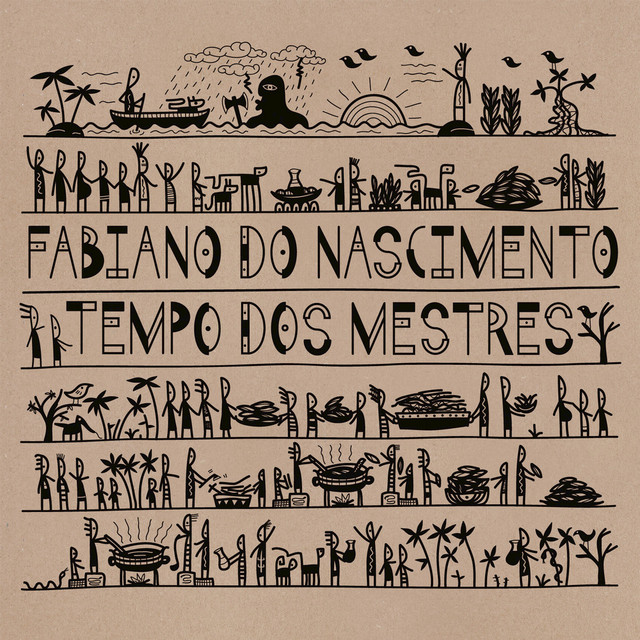 FABIANO DO NASCIMENTO
TEMPO DOS MESTRES